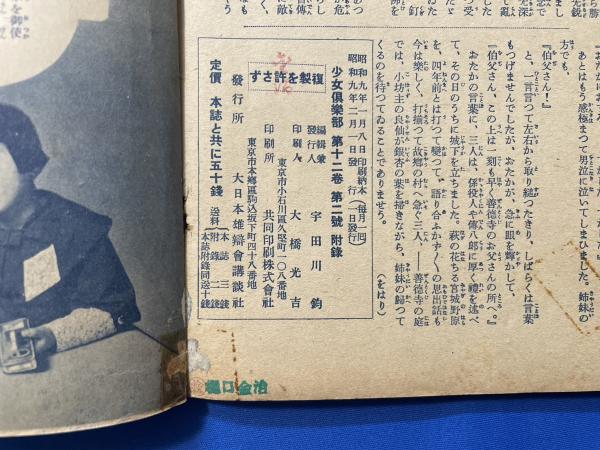 方でも、
『伯父さん！』
と、一言言つて左右から取り縋つたきり、しばらくは言葉
もつげませんでしたが、おたかが、急に眼を輝かして、
『伯父さん、この上は一刻も早く善德寺のお父さんの所へ。』
おたかの言葉に、三人は、係役人や傳八郎に厚く禮を述べ
て、その日のうちに城下を立ちました。萩の花ちる宮城野原
を、四年前とは打つて變つて、語り合ふかず〱の思出話も
今は樂しく、打揃つて故鄕の村へ急ぐ三人。――善德寺の庭
では、小坊主の良仙が銀杏の葉を掃きながら、姉妹の歸つて
くるのを待つてゐることでありませう。
（をはり）
昭和九年一月八日印刷納本（每月一囘
昭和九年二月一日發行 一日發行）
少女俱樂部 第十二卷 第二號 附錄
編輯兼
發行人 宇田川鈞
印刷人 大橋光吉
東京市小石川區久堅町一〇八番地
印刷所 共同印刷株式會社
東京市本鄕區駒込坂下町四十八番地
發行所 大日本雄辯會講談社
定價 本誌と共に五十錢
送料
本誌 三錢
附錄
本誌附錄同送十錢
複製を許さず
樋口金治